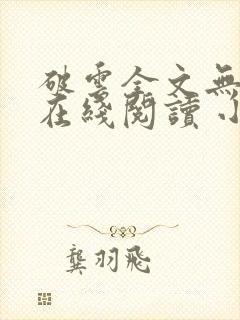 破雲全文無
在綫閱讀 小
龔羽飛